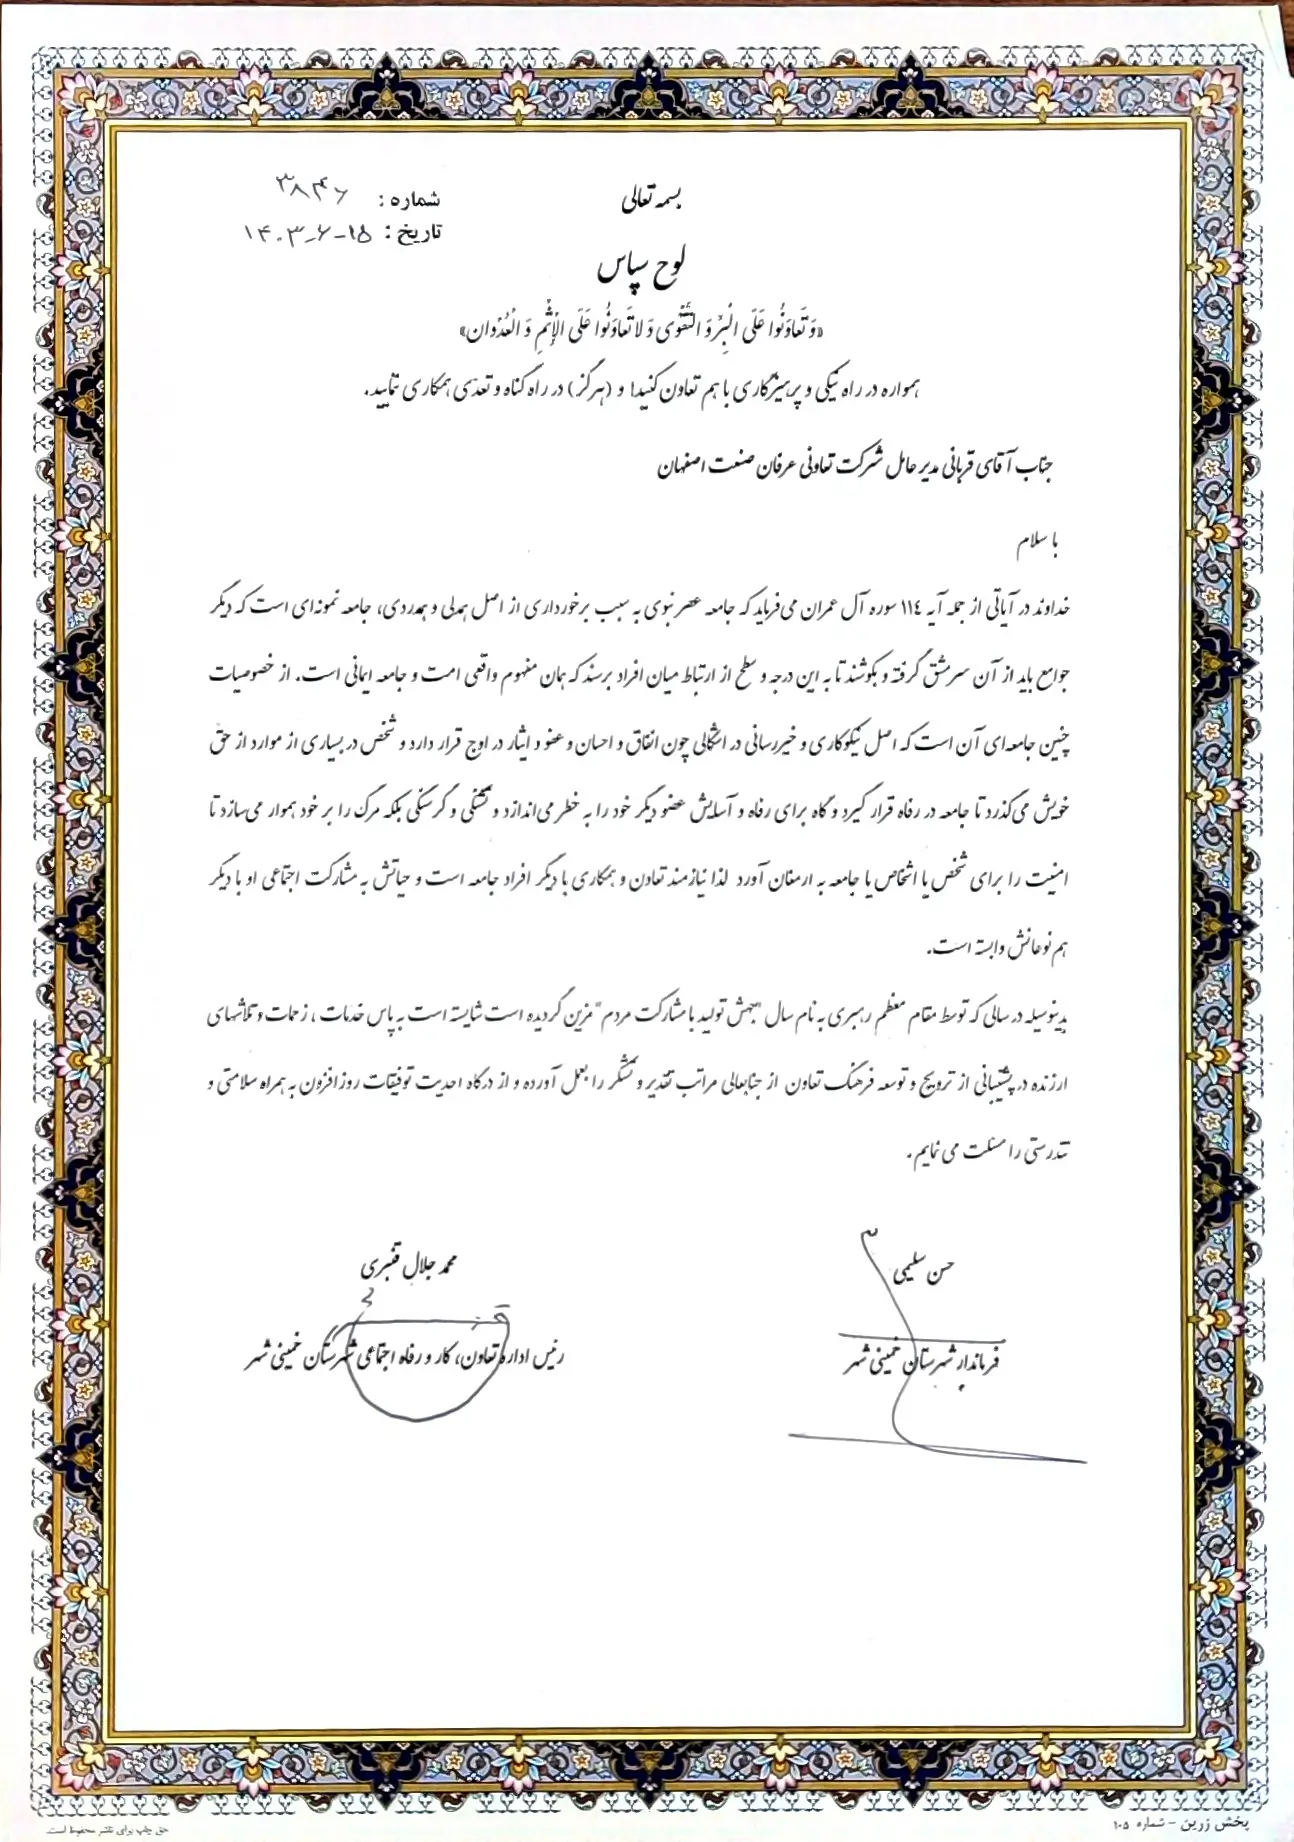 بسمه تعالی
شماره : ۳۸۴۶
تاریخ : ۱۴۰۳-۶-۱۵
لوح سپاس
«وَ تَعاوَنُوا عَلَی الْبِرِّ وَ التَّقْوی وَ لا تَعاوَنُوا عَلَی الْإِثْمِ وَ الْعُدْوان»
همواره در راه نیکی و پرهیزگاری با هم تعاون کنید! و (هرگز) در راه گناه و تعدّی همکاری نمایید.
جناب آقای قربانی مدیر عامل شرکت تعاونی عرفان صنعت اصفهان
با سلام
خداوند در آیاتی از جمله آیه ١١٤ سوره آل عمران می‌فرماید که جامعه عصر نبوی به سبب برخورداری از اصل همدلی و همدردی، جامعه نمونه‌ای است که دیگر
جوامع باید از آن سرمشق گرفته و بکوشند تا به این درجه و سطح از ارتباط میان افراد برسند که همان مفهوم واقعی امت و جامعه ایمانی است. از خصوصیات
چنین جامعه‌ای آن است که اصل نیکوکاری و خیررسانی در اشکالی چون انفاق و احسان و عفو و ایثار در اوج قرار دارد و شخص در بسیاری از موارد از حق
خویش می‌گذرد تا جامعه در رفاه قرار گیرد و گاه برای رفاه و آسایش عضو دیگر خود را به خطر می‌اندازد و تشنگی و گرسنگی بلکه مرگ را بر خود هموار می‌سازد تا
امنیت را برای شخص یا اشخاص یا جامعه به ارمغان آورد لذا نیازمند تعاون و همکاری با دیگر افراد جامعه است و حیاتش به مشارکت اجتماعی او با دیگر
هم نوعانش وابسته است.
بدینوسیله در سالی که توسط مقام معظم رهبری به نام سال "جهش تولید با مشارکت مردم" مزین گردیده است شایسته است به پاس خدمات ، زحمات و تلاشهای
ارزنده در پشتیبانی از ترویج و توسعه فرهنگ تعاون از جنابعالی مراتب تقدیر و تشکر را بعمل آورده و از درگاه احدیت توفیقات روزافزون به همراه سلامتی و
تندرستی را مسئلت می نمایم.
حسن سلیمی
فرماندار شهرستان خمینی شهر
محمد جلال قنبری
رئیس اداره تعاون، کار و رفاه اجتماعی شهرستان خمینی شهر
پخش زرین - شماره ۱۰۵
حق چاپ برای ناشر محفوظ است.